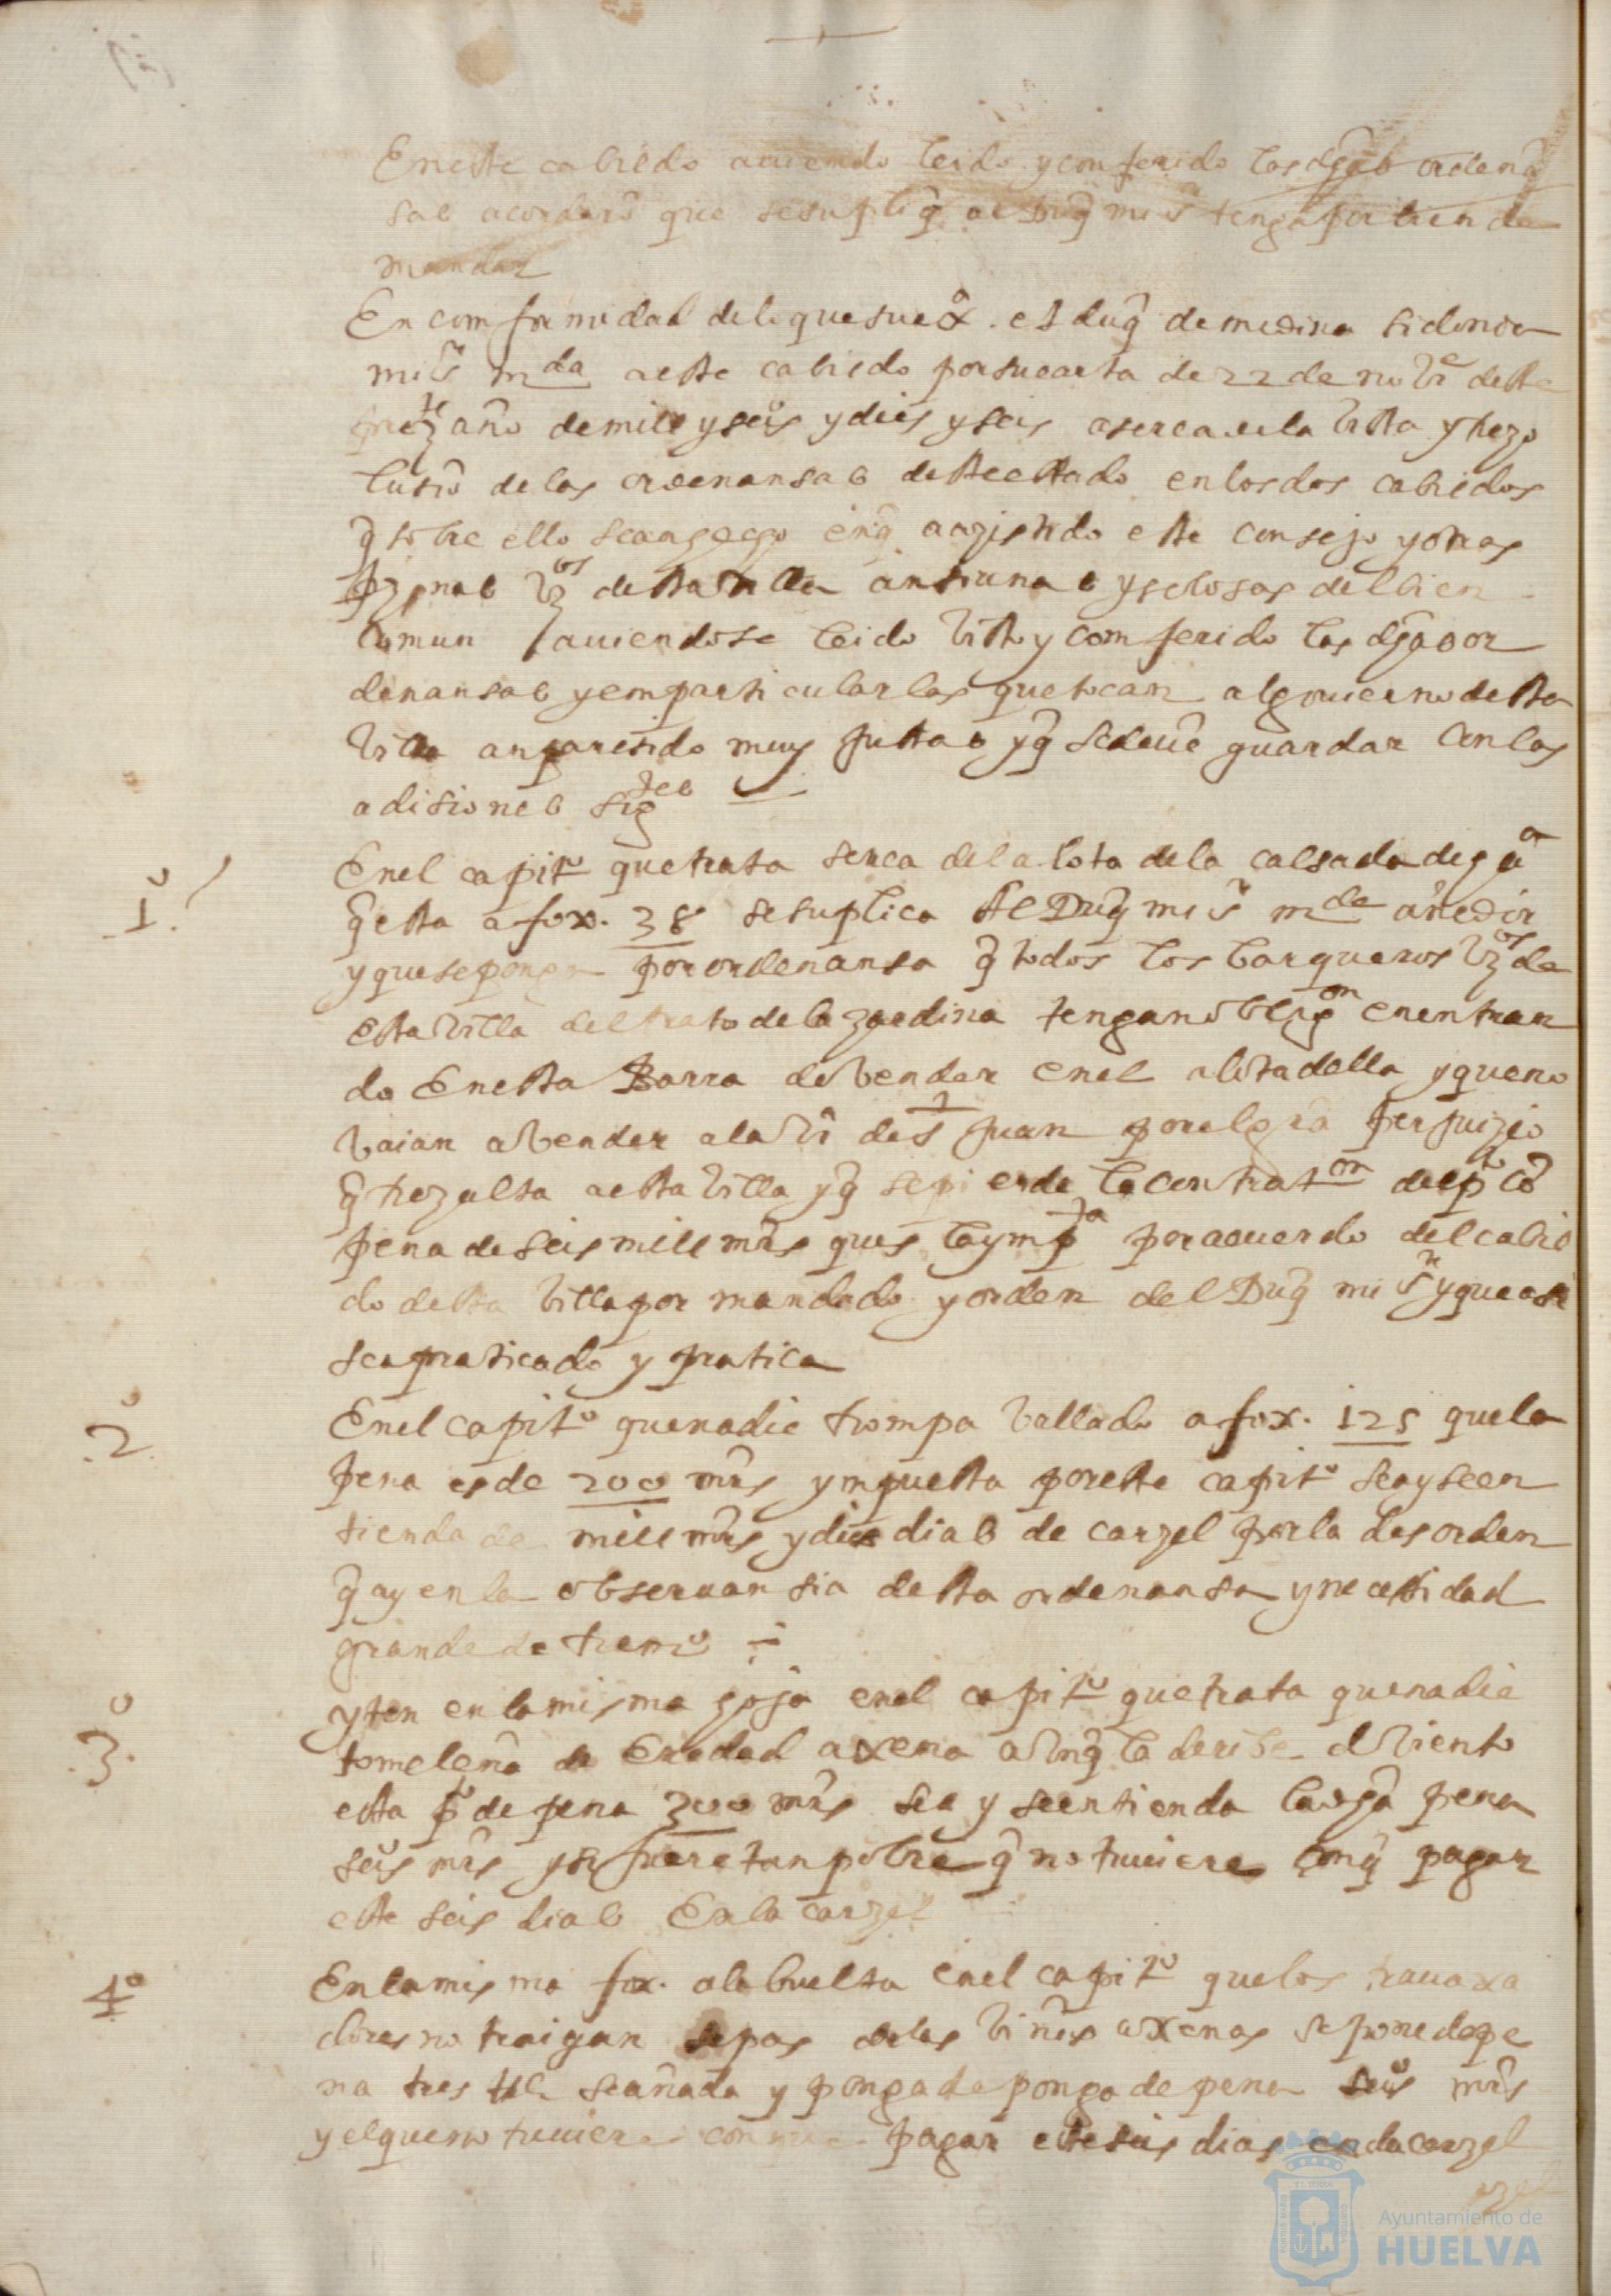 En este cabildo auiendo leido y comferido las dhas ordenã
sas acordarõ que se supliq̃ al Duq̃ mi sr tenga por bien de
mandar
En comformidad de lo que su exa. el duq̃ de medina sidonia
mi sr mda a este cabildo por su carta de 22 de nobre deste
prete año de mill y seisº y dies y seis aserca de la vista y rezo
lusiõ de las ordenansas deste estado en los dos cabildos
q̃ sobre ello se an hecho en q̃ a asistido este consejo y otras
pzonas vzos desta villa ansianas y selosas del bien
comun / auiendose leido visto y comferido las dhas or
denansas y em particular las que tocan al gouierno desta
villa an paresido muy justas y q̃ se deuẽ guardar con las
adisiones sigtes
1º
En el capitº que trata serca de la lota de la calsada
q̃ esta a fox. 38 se suplica al Duq̃ mi sr mde añedir
y que se ponga por ordenansa q̃ todos los barqueros vzos de
esta villa del trato de la zardina tengan obligon en entran
do En esta Barra de vender en el alota della y que no
vaian a vender a la vª de s juan por el grã perjuizio
q̃ rezulta a esta villa y q̃ se pierde la contraton del ptº cõ
pena de seis mill mrs ques la ympta por acuerdo del cabil
do desta villa por mandado y orden del Duq̃ mi sr y que asi
se a praticado y pratica
2º
En el capitº que nadie rrompa vallado a fox. 125 que la
pena es de 200 mrs ympuesta por este capitº sea y se en
tienda de mill mrs y dies dias de carzel por la desorden
q̃ ay en la obseruansia desta ordenansa y nesesidad
grande de rremº
3º
yten en la misma foja en el capitº que trata que nadie
tome leña de Eredad axena avnq̃ la deribe el viento
esta pº de pena 300 mrs sea y se entienda la dhã pena
seisº mrs y si fuere tan pobre q̃ no tuuiere con q̃ pagar
este seis dias En la carzel
4º
En la misma fox. a la buelta en el capitº que los trauaxa
dores no traigan sepas de las viñas axenas se pone de pe
na tres rrls se añada y ponga de ponga de pena seisº mrs
y el que no tuuiere con que pagar este seis dias en la carzel
Ayuntamiento de
HUELVA